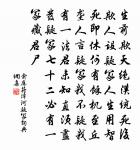 生前欺天絕漢統死後
欺人設疑冢人生用智
死即休何有餘機到丘
壟人言疑冢我不疑我
有一法君未知直須盡
發疑冢七十二必有一
冢藏君屍
俞應符漳河疑冢